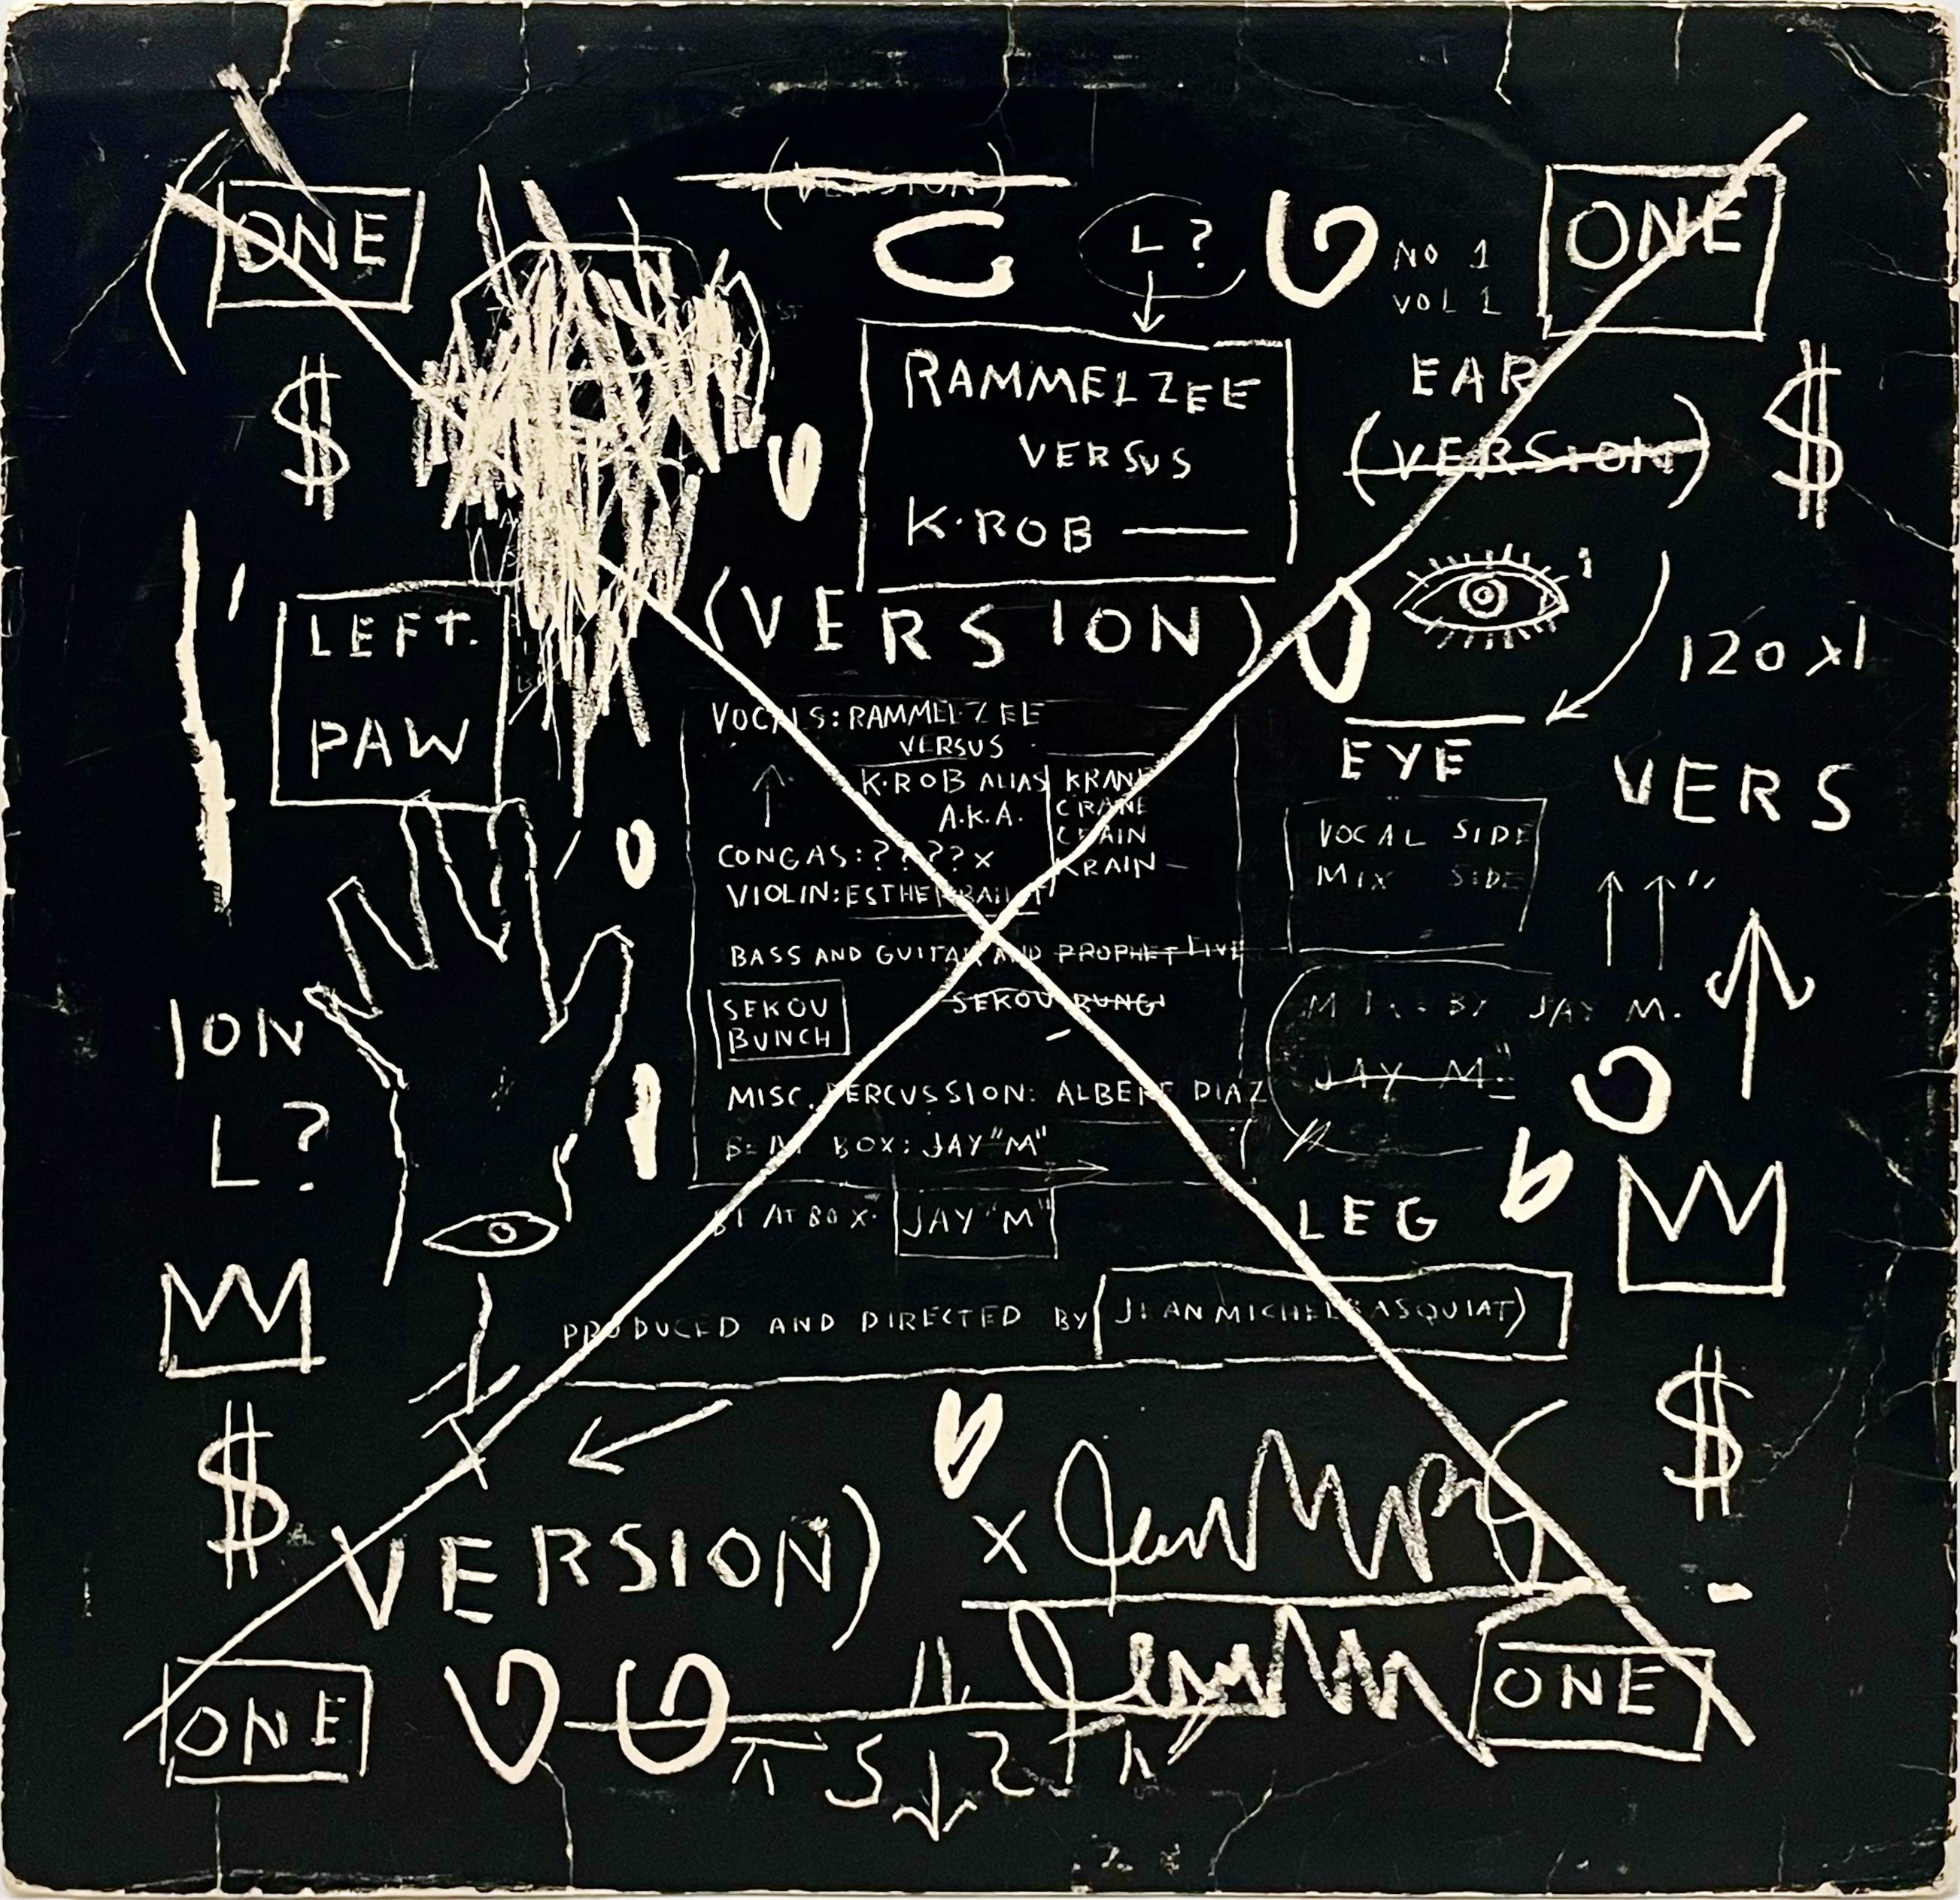 (VERSION)
ONE
ONE
L ?
NO 1
VOL 1
RAMMELZEE
VERSUS
K·ROB —
EAR
(VERSION)
$
$
(VERSION)
LEFT.
PAW
120 x1
EYE
VERS
VOCALS: RAMMELZEE
VERSUS
K·ROB ALIAS KRANE
A.K.A. CRANE
CRAIN
KRAIN —
CONGAS: ???? x
VIOLIN: ESTHER BALINT
BASS AND GUITAR AND PROPHET FIVE
SEKOU
BUNCH
SEKOU BUNGI
MISC. PERCUSSION: ALBERT DIAZ
BOX: JAY "M"
BEAT BOX: JAY "M"
VOCAL SIDE
MIX SIDE
BY JAY M.
JAY M."
ION
L ?
LEG
PRODUCED AND DIRECTED BY (JEAN MICHEL BASQUIAT)
$
$
VERSION)
x
ONE
ONE